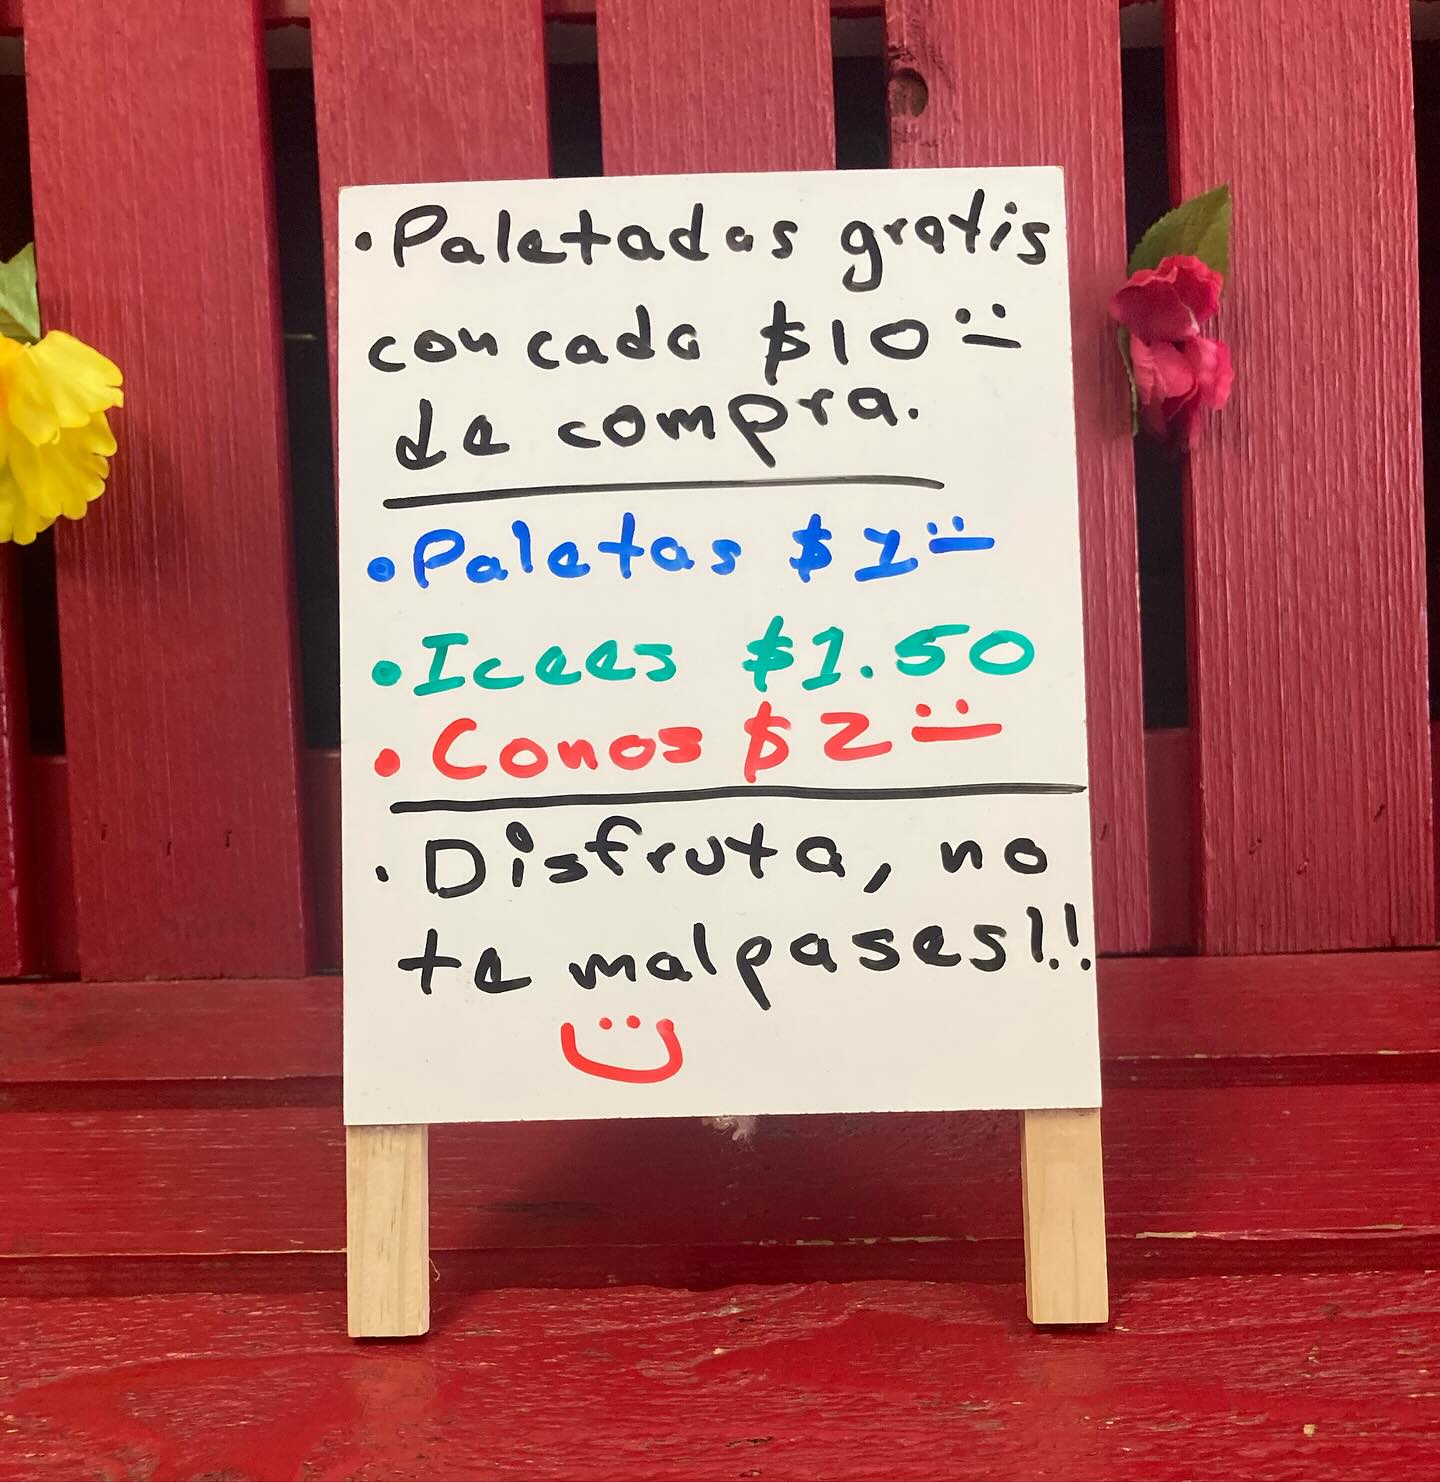 • Paletadas gratis
con cada $10
de compra.
• Paletas $1
• Icees $1.50
• Conos $2
• Disfruta, no
te malpases!!